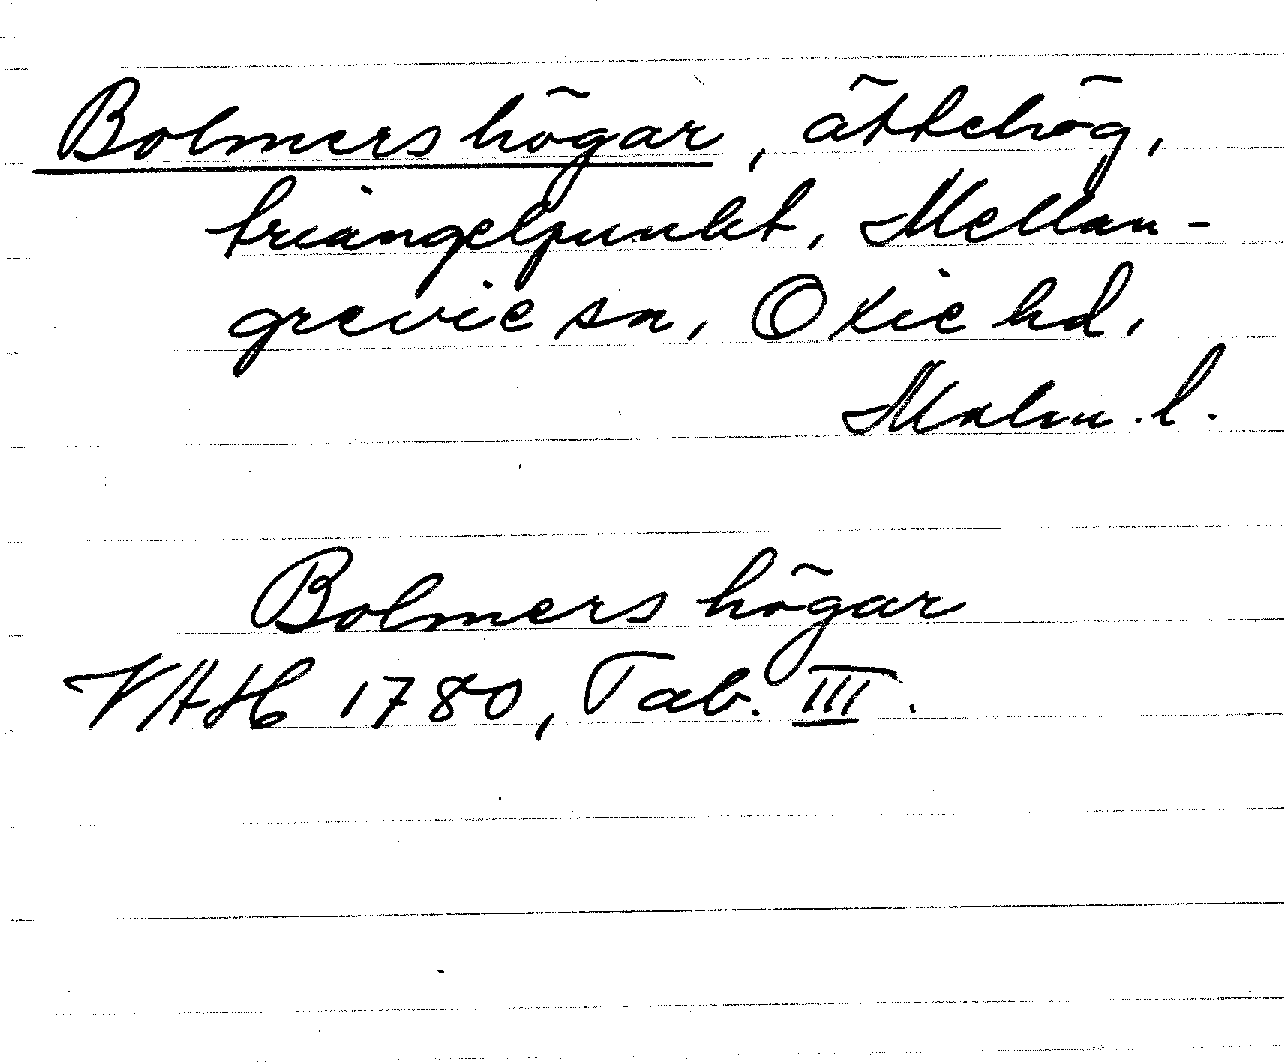 Bolmers högar, ättehög,
triangelpunkt, Mellan-
grevie sn, Oxie hd,
Malm. l.
Bolmers högar
VAH 1780, Tab. III.